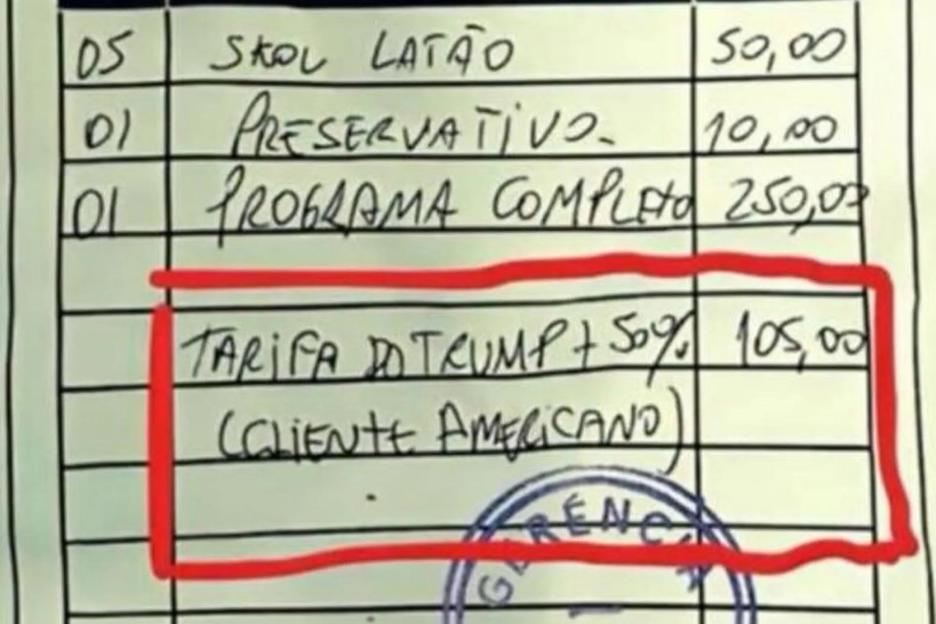 05 SKOL LATÃO 50,00
01 PRESERVATIVO 10,00
01 PROGRAMA COMPLETO 250,00
TARIFA DO TRUMP + 50% 105,00
(CLIENTE AMERICANO)
GERENCIA